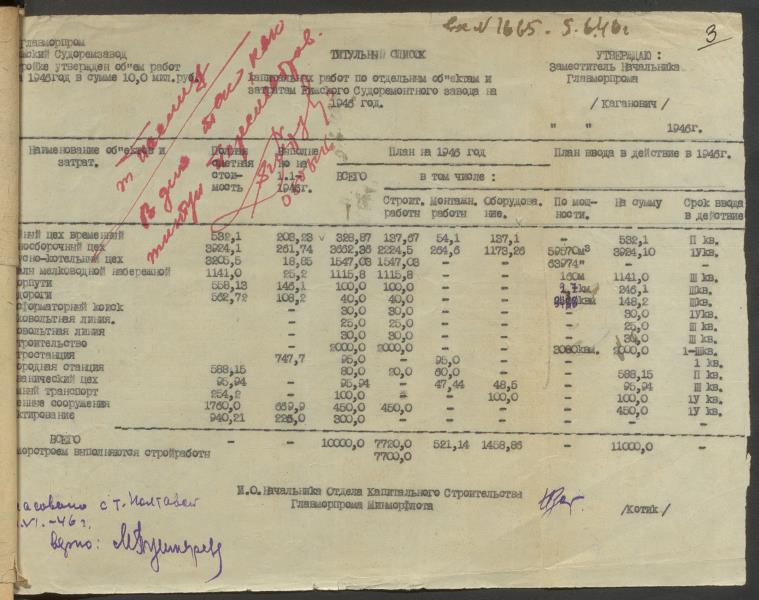 вх №1665. 5.6.46г
3
главморпром
ский Судоремзавод
ройке утвержден об"ем работ
1946год в сумме 10,0 мил.руб.
ТИТУЛЬНЫЙ СПИСОК
капитальных работ по отдельным об"ектам и
затратам Рижского Судоремонтного завода на
1946 год.
УТВЕРЖДАЮ :
Заместитель Начальника
Главморпрома
/ Каганович /
" " 1946г.
Наименование об"ектов и затрат.
Полная сметная стои- мость
Выполне но на 1.1- 1946г.
План на 1946 год
План ввода в действие в 1946г.
ВСЕГО
в том числе :
Строит. работы
Монтажн. работы
Оборудова ние.
По мощ- ности.
На сумму
Срок ввода в действие
ный цех временный 532,1 203,23 328,87 137,67 54,1 137,1 - 532,1 П кв.
носборочный цех 3924,1 261,74 3662,36 2224,5 264,6 1173,26 59570м³ 3924,10 1Укв.
сно-котельный цех 3205,5 18,85 1547,03 1547,03 - - 63974" - -
мелководной набережной 1141,0 25,2 1115,8 1115,8 - - 160м 1141,0 Ш кв.
орпути 558,13 146,1 100,0 100,0 - - км. 246,1 Шкв.
дороги 562,72 108,2 40,0 40,0 - - 148,2 Шкв.
сформаторный киоск - 30,0 30,0 - - - 30,0 1Укв.
ковольтная линия. - 25,0 25,0 - - - 25,0 Ш кв.
овольтная линия - 30,0 30,0 - - - 30,0 Ш кв.
троительство - 2000,0 2000,0 - - 3080квм. 2000,0 1-Шкв.
тростанция 747,7 95,0 - 95,0 - - - 1 кв.
ородная станция 588,15 - 80,0 20,0 60,0 - - 588,15 П кв.
ханический цех 95,94 - 95,94 - 47,44 48,5 - 95,94 Ш кв.
ный транспорт 254,2 - 100,0 - - 100,0 - 100,0 1У кв.
нные сооружения 1760,0 659,9 450,0 450,0 - - - 450,0 1У кв.
ктирование 940,21 226,0 300,0 - - - - - -
ВСЕГО - - 10000,0 7720,0 521,14 1458,86 - 11000,0 -
морстроем выполняются стройработы 7700,0
И.О.Начальника Отдела Капитального Строительства
Главморпрома Минморфлота
/Котик/
асовано с т. Полтавец
VI.-46г.
верно: